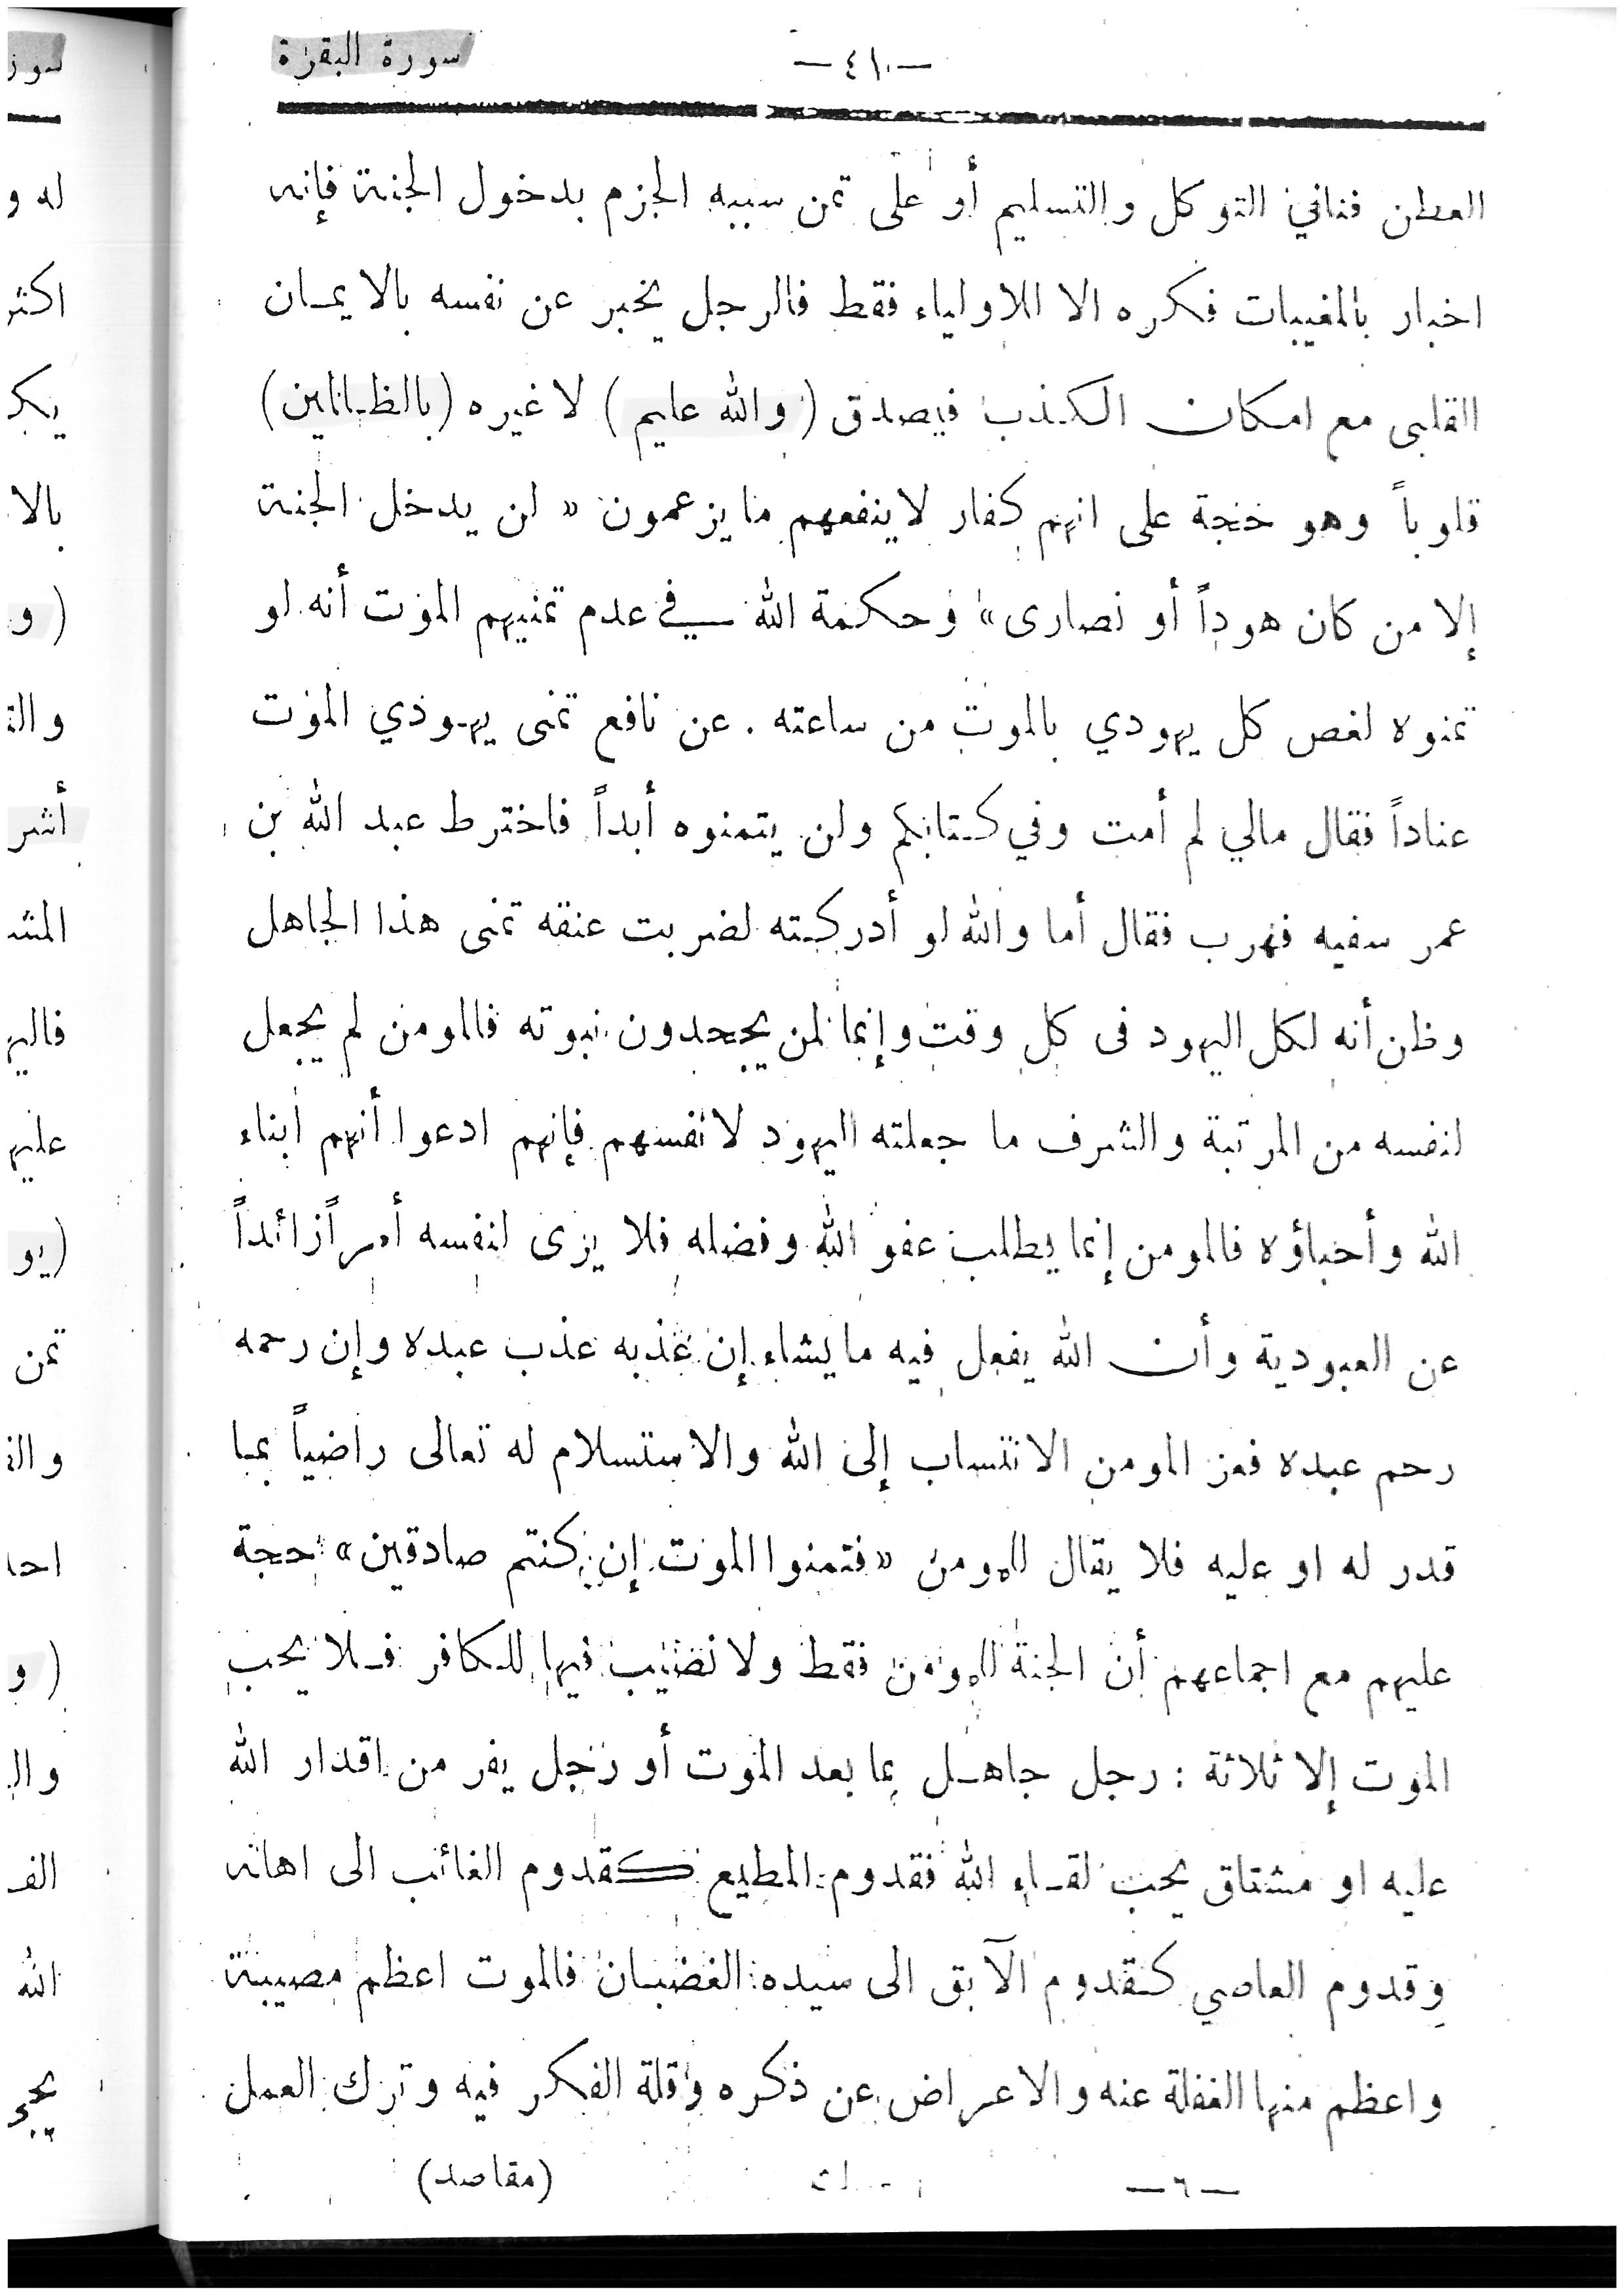 سورة البقرة
—٤١٠—
العطن فنافي التوكل والتسليم أو على تمن سببه الجزم بدخول الجنة فإنه
اخبار بالمغيبات فكره الا للاولياء فقط فالرجل يخبر عن نفسه بالايمان
القلبى مع امكان الكذب فيصدق (والله عليم) لا غيره (بالظالمين)
قلوباً وهو حجة على انهم كفار لاينفعهم مايزعمون « لن يدخل الجنة
إلا من كان هوداً أو نصارى» وحكمة الله في عدم تمنيهم الموت أنه لو
تمنوه لغص كل يهودي بالموت من ساعته . عن نافع تمنى يهودي الموت
عناداً فقال مالي لم أمت وفي كتابكم ولن يتمنوه أبداً فاخترط عبد الله بن
عمر سفيه فهرب فقال أما والله لو أدركته لضربت عنقه تمنى هذا الجاهل
وظن أنه لكل اليهود فى كل وقت وإنما لمن يجحدون نبوته فالمومن لم يجعل
لنفسه من المرتبة والشرف ما جعلته اليهود لانفسهم فإنهم ادعوا أنهم ابناء
الله وأحباؤه فالمومن إنما يطلب عفو الله وفضله فلا يرى لنفسه أمراً زائداً
عن العبودية وأن الله يفعل فيه مايشاء إن عذبه عذب عبده وإن رحمه
رحم عبده فعز المومن الانتساب إلى الله والاستسلام له تعالى راضياً بما
قدر له او عليه فلا يقال للمومن «فتمنوا الموت إن كنتم صادقين» حجة
عليهم مع اجماعهم أن الجنة للمومن فقط ولا نصيب فيها للكافر فلا يحب
الموت إلا ثلاثة : رجل جاهل بما بعد الموت أو رجل يفر من اقدار الله
عليه او مشتاق يحب لقاء الله فقدوم المطيع كقدوم الغائب الى اهله
وقدوم العاصي كقدوم الآبق الى سيده الغضبان فالموت اعظم مصيبة
واعظم منها الغفلة عنه والاعراض عن ذكره وقلة الفكر فيه وترك العمل
—٦— (مقاصد)